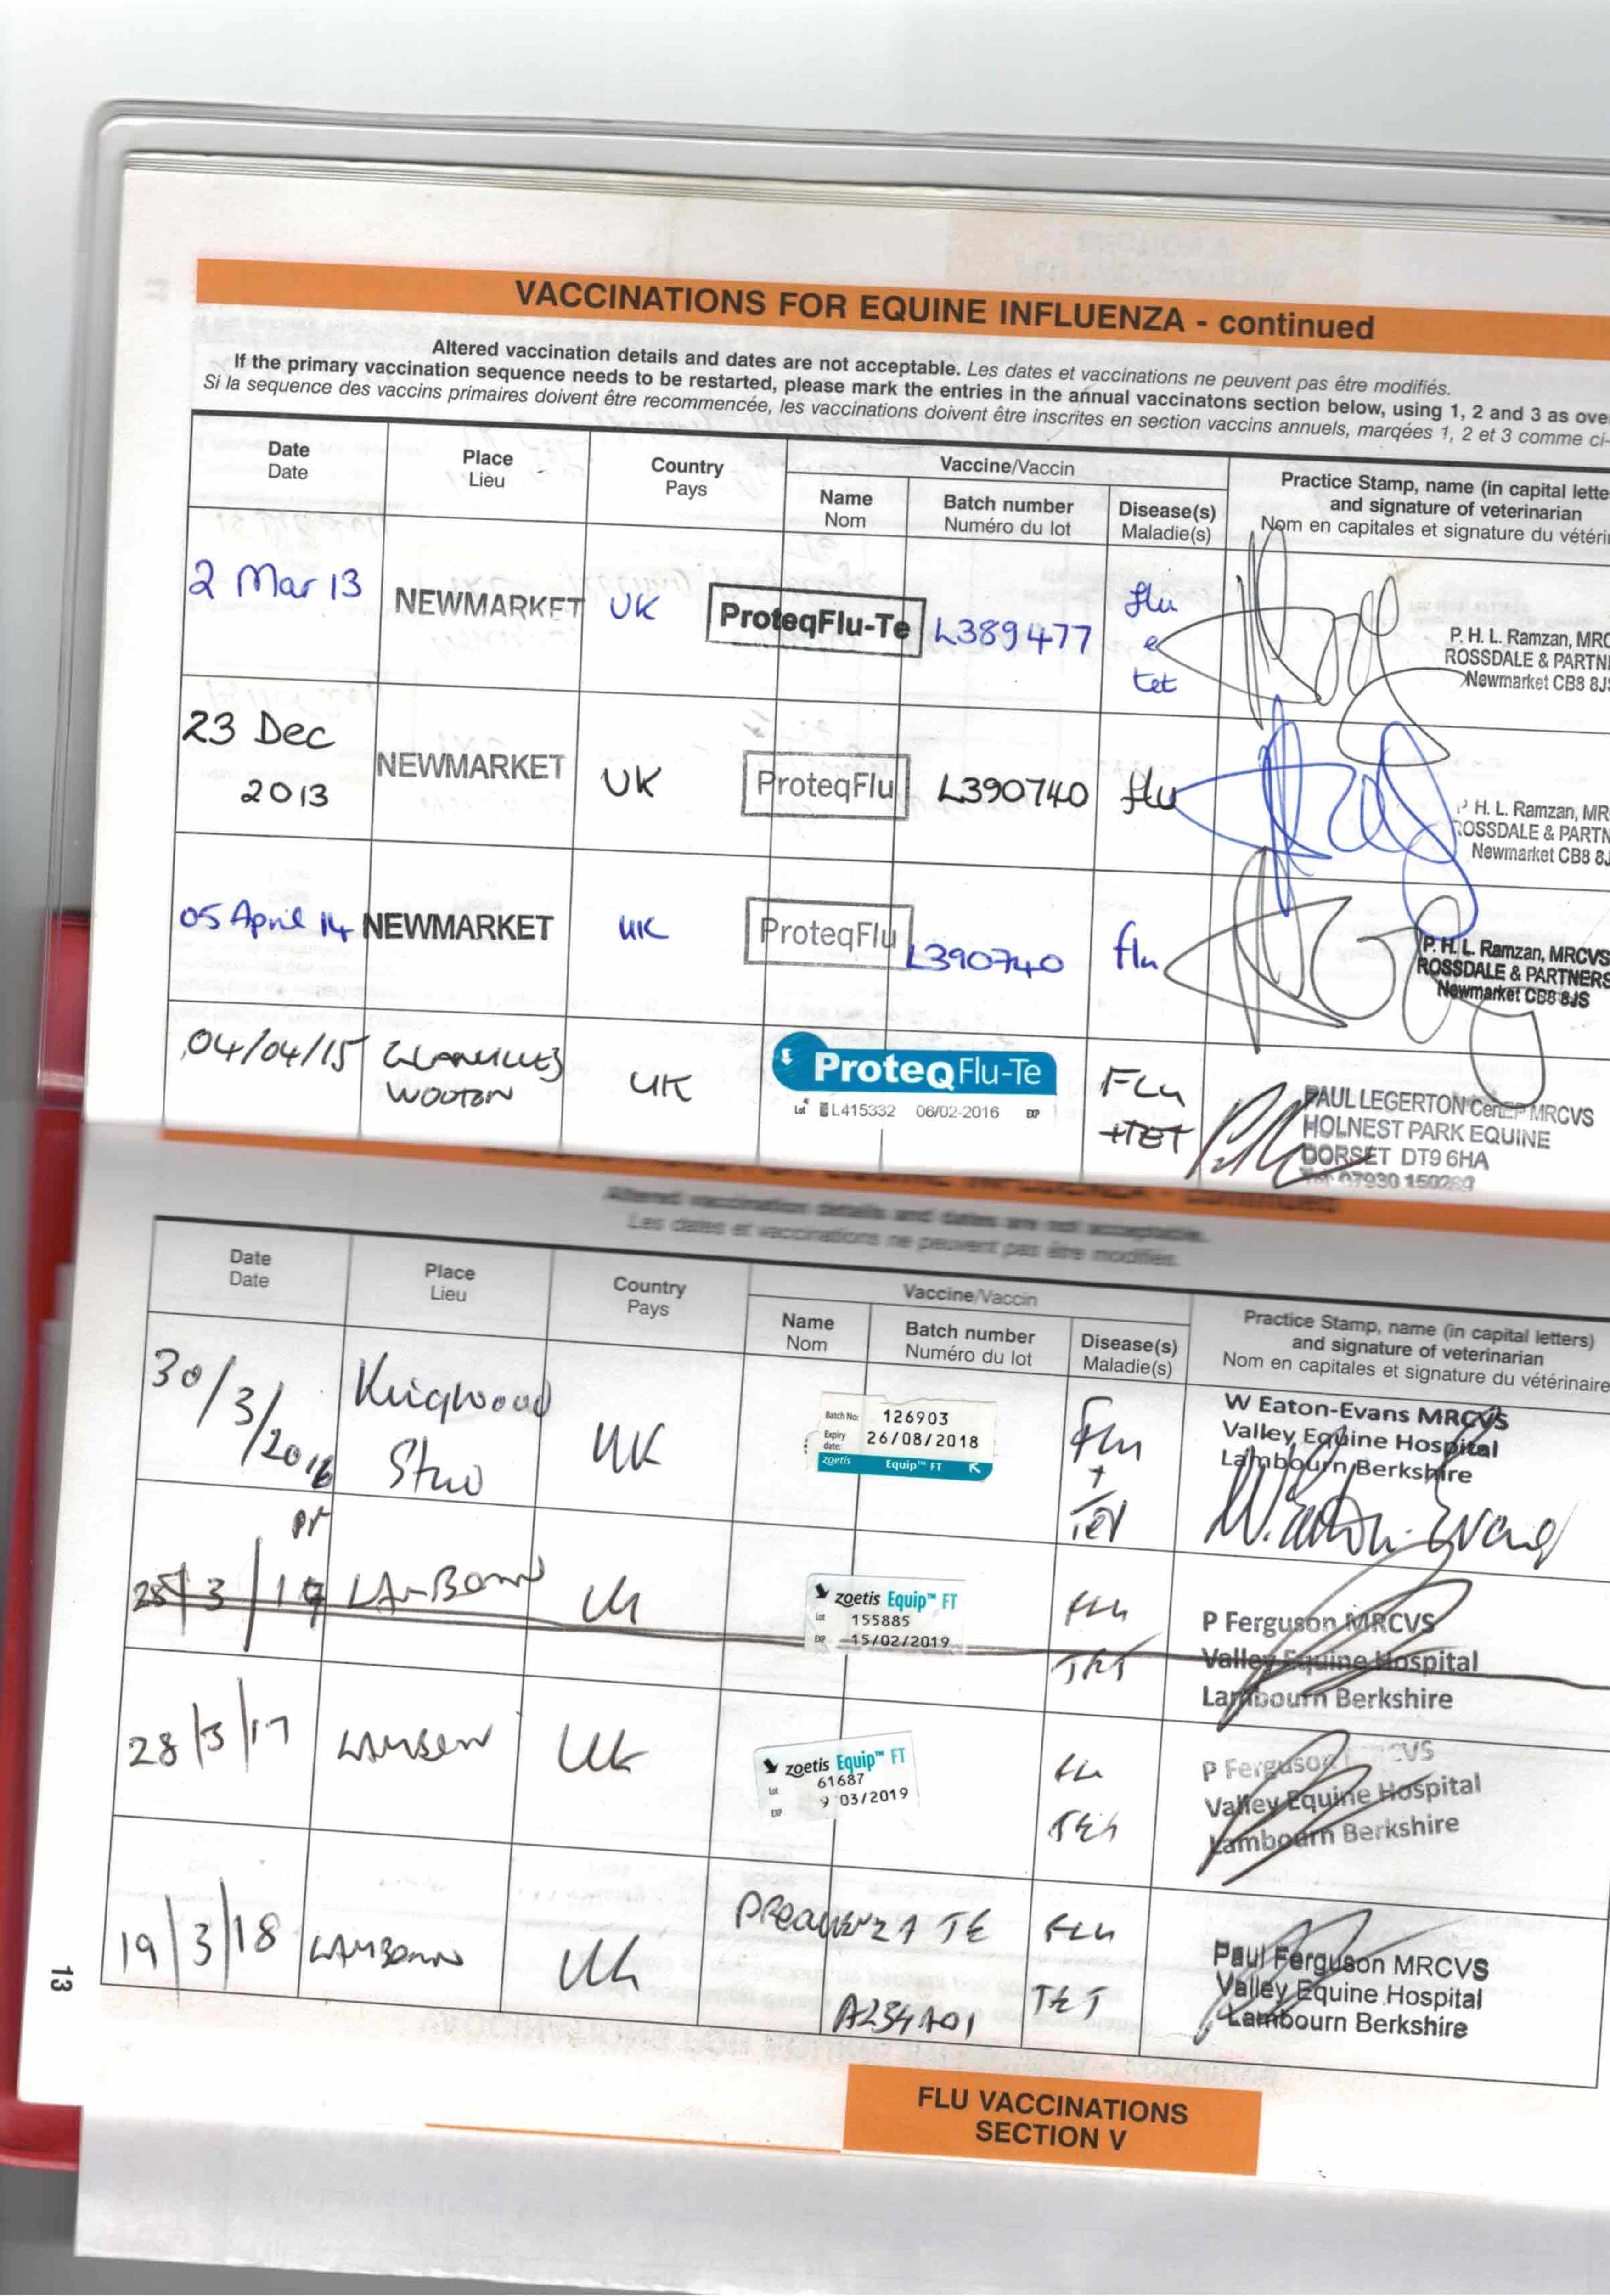 VACCINATIONS FOR EQUINE INFLUENZA - continued
Altered vaccination details and dates are not acceptable. Les dates et vaccinations ne peuvent pas être modifiés.
If the primary vaccination sequence needs to be restarted, please mark the entries in the annual vaccinatons section below, using 1, 2 and 3 as over
Si la sequence des vaccins primaires doivent être recommencée, les vaccinations doivent être inscrites en section vaccins annuels, marqées 1, 2 et 3 comme ci-
Date Place Country Vaccine/Vaccin Practice Stamp, name (in capital lette
Date Lieu Pays Name Batch number Disease(s) and signature of veterinarian
Nom Numéro du lot Maladie(s) Nom en capitales et signature du vétérin
2 Mar 13 NEWMARKET UK ProteqFlu-Te L389477 flu
e
tet
P. H. L. Ramzan, MRC
ROSSDALE & PARTN
Newmarket CB8 8JS
23 Dec
2013
NEWMARKET UK ProteqFlu L390740 flu
H. L. Ramzan, MR
ROSSDALE & PARTN
Newmarket CB8 8J
05 April 14 NEWMARKET UK ProteqFlu L390740 flu
P. H. L. Ramzan, MRCVS
ROSSDALE & PARTNERS
Newmarket CB8 8JS
04/04/15 WOOTON UK ProteqFlu-Te
Lot L415332 06/02-2016 EXP
FLU
+TET
PAUL LEGERTON CertEP MRCVS
HOLNEST PARK EQUINE
DORSET DT9 6HA
Altered vaccination details and dates are not acceptable.
Les dates et vaccinations ne peuvent pas être modifiés.
Date Place Country Vaccine/Vaccin Practice Stamp, name (in capital letters)
Date Lieu Pays Name Batch number Disease(s) and signature of veterinarian
Nom Numéro du lot Maladie(s) Nom en capitales et signature du vétérinaire
30/3/2016 Kingwood
Stud
UK
Batch No: 126903
Expiry date: 26/08/2018
zoetis Equip™ FT
Flu
+
Tet
W Eaton-Evans MRCVS
Valley Equine Hospital
Lambourn Berkshire
W. Eaton-Evans
PF
28/3/17 LAMBOURN UK
zoetis Equip™ FT
Lot 155885
EXP 15/02/2019
Flu
TET
P Ferguson MRCVS
Valley Equine Hospital
Lambourn Berkshire
28/3/17 UK
zoetis Equip™ FT
Lot 61687
EXP 9 03/2019
Flu
P Ferguson CVS
Valley Equine Hospital
Lambourn Berkshire
19/3/18 LAMBOURN UK PREQUENZA TE FLU
A234A01 TET
Paul Ferguson MRCVS
Valley Equine Hospital
Lambourn Berkshire
13
FLU VACCINATIONS
SECTION V